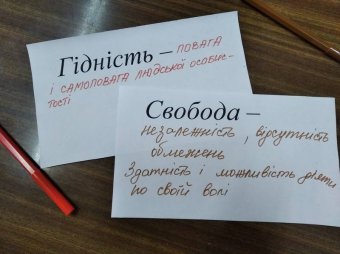 Гідність – повага
і самоповага людської особис-
тості
Свобода –
незалежність, відсутність
обмежень
Здатність і можливість діяти
по своїй волі